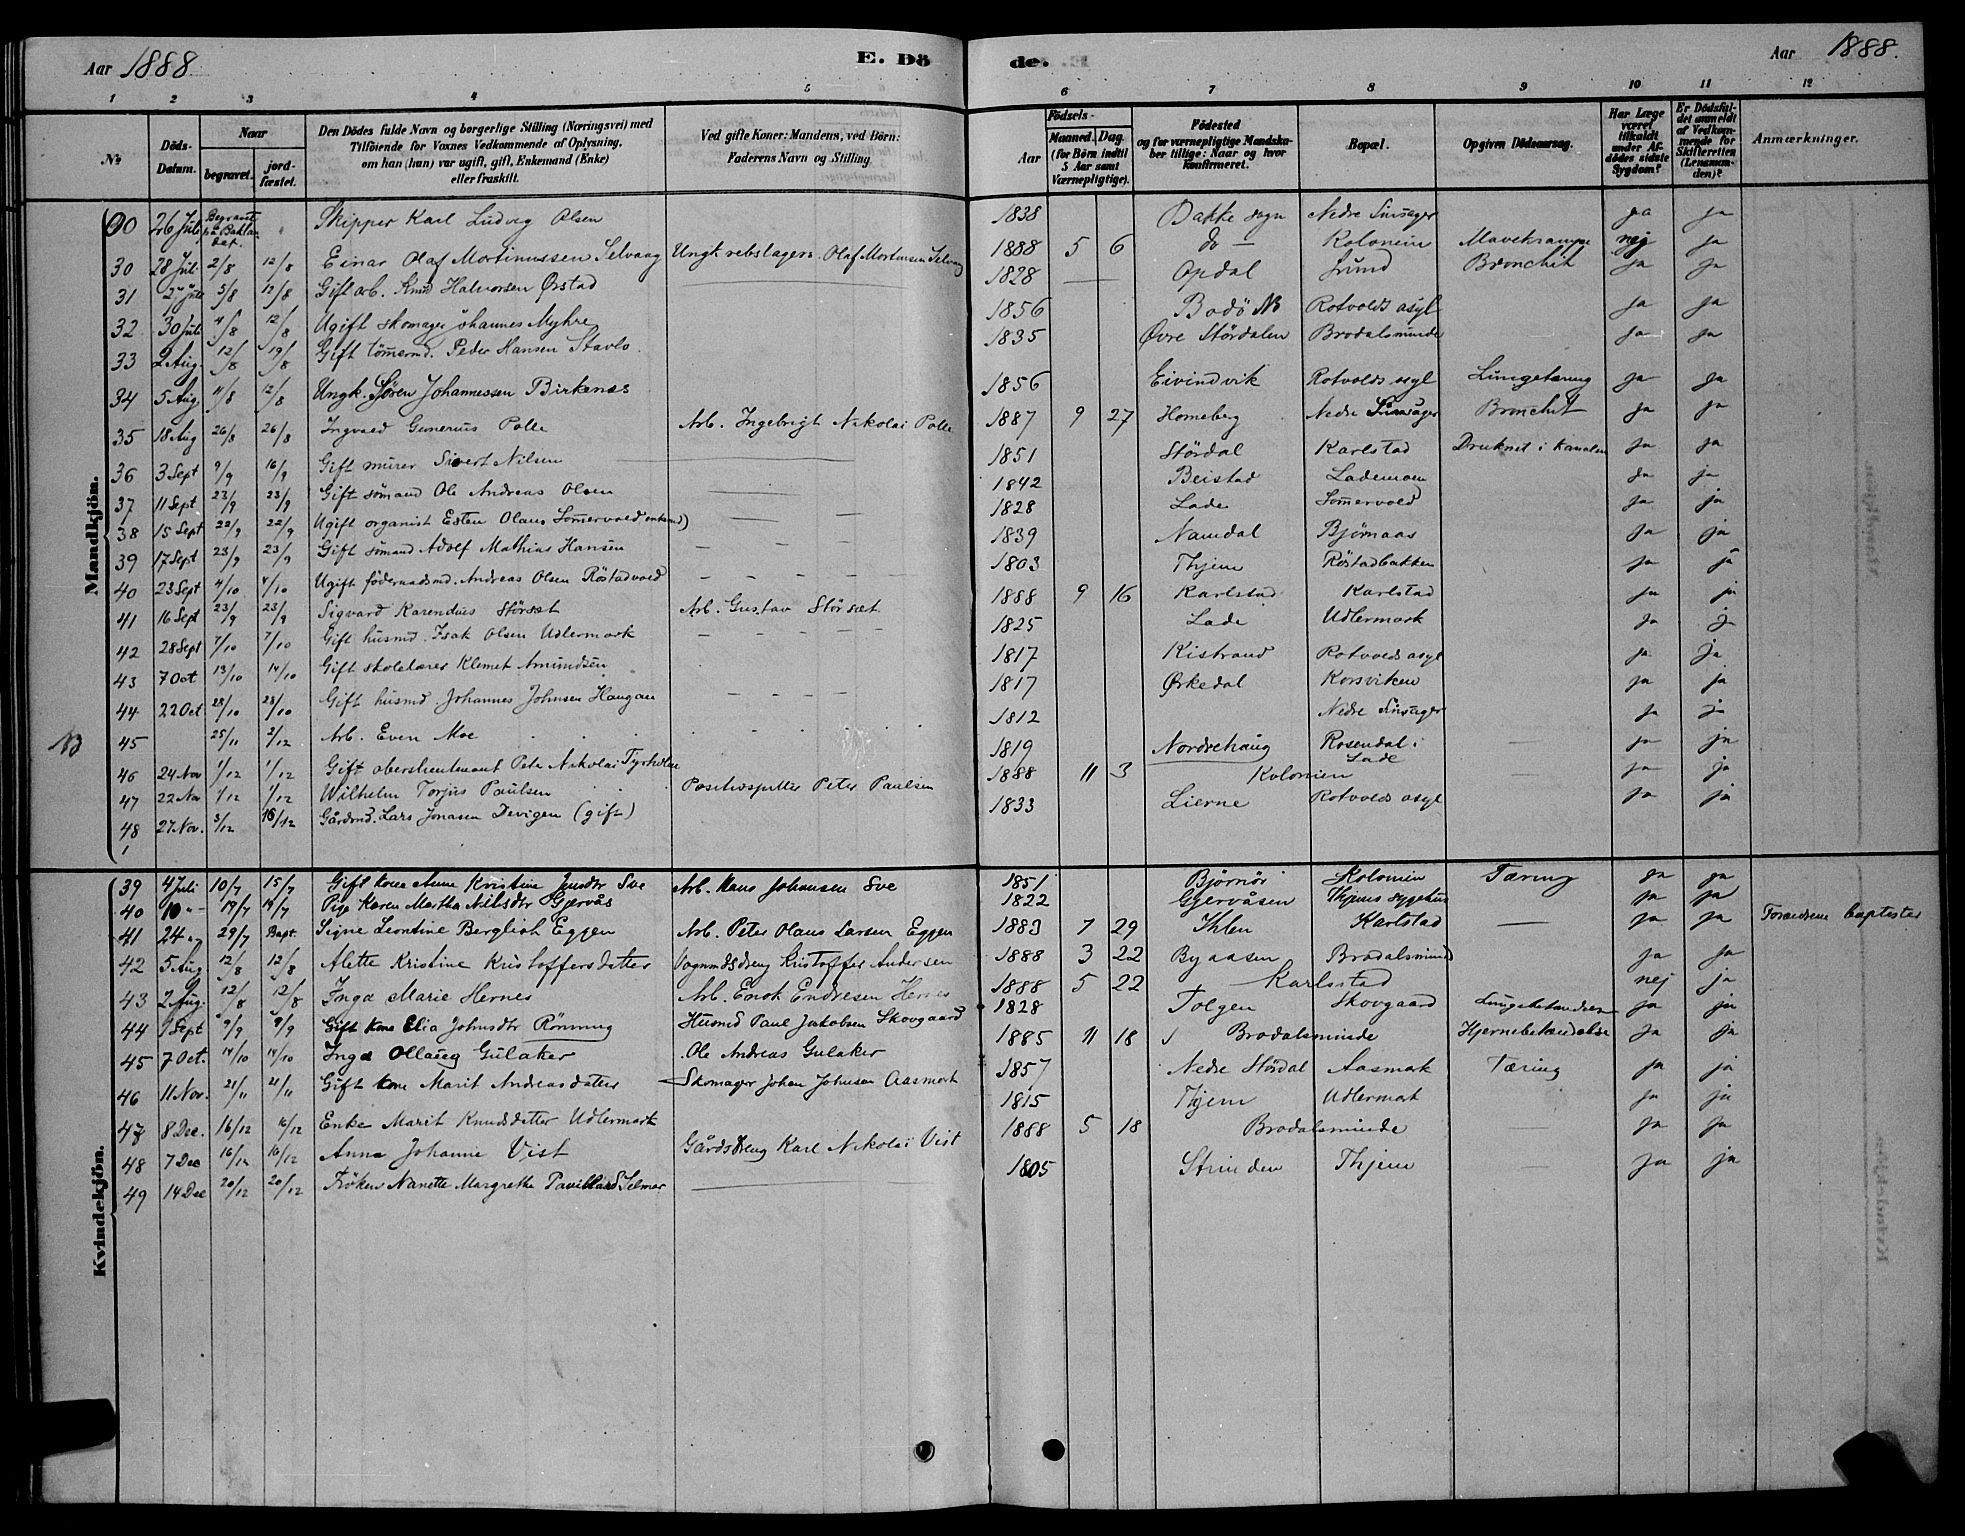 Aar 1888. E. Dö de. Aar 1888.
1 2 3 4 5 6 7 8 9 10 11 12
No
Döds-Datum.
Naar begravet. jord-fæstet.
Den Dödes fulde Navn og borgerlige Stilling (Næringsvei) med Tilföiende for Voxnes Vedkommende af Oplysning, om han (hun) var ugift, gift, Enkemand (Enke) eller fraskilt.
Ved gifte Koner: Mandens, ved Börn: Faderens Navn og Stilling.
Födsels-
Aar Maaned. Dag. (for Börn indtil 5 Aar samt Værnepligtige).
Födested og for værnepligtige Mandskaber tillige: Naar og hvor konfirmeret.
Bopæl.
Opgiven Dödsaarsag.
Har Læge været tilkaldt under Afdödes sidste Sygdom?
Er Dödsfaldet anmeldt af Vedkommende for Skifteretten (Lensmanden)?
Anmærkninger.
Mandkjön.
00 26 Juli Begravet på Baklandet. Skipper Karl Ludvig Olsen 1838 Bakke sogn Nedre Sinsager ja ja
30 28 Juli 2/8 12/8 Einar Olaf Mortinussen Selvaag Ungk rebslager Olaf Mortinsen Selvaag 1888 5 6 do — Kolonien Mavekrampe nej ja
31 5/8 12/8 Gift arb. Knud Halvorsen Ørstad 1828 Opdal Lund Bronchit ja ja
32 30 Juli 4/8 12/8 Ugift skomager Johannes Myhre 1856 Bodö Rotvolds asyl ja ja
33 2 Aug. 12/8 19/8 Gift tömermd. Peder Hansen Stavlo 1835 Øvre Stördalen Brodalsminde ja ja
34 5 Aug 11/8 12/8 Ungk. Søren Johannessen Birkenæs 1856 Eivindvik Rotvolds asyl Lungetæring ja ja
35 18 Aug 26/8 26/8 Ingvald Gunerius Polle Arb. Ingebrigt Nikolai Polle 1887 9 27 Homeberg Nedre Sinsager Bronchit ja ja
36 3 Sept 9/9 16/9 Gift murer Sivert Nilsen 1851 Stördal Karlstad Druknet i kanalen ja ja
37 11 Sept 23/9 23/9 Gift sömand Ole Andreas Olsen 1842 Beistad Lademoen ja ja
38 15 Sept 22/9 22/9 Ugift organist Esten Olaus Sommervold 1828 Lade Sommervold ja ja
39 17 Sept 23/9 23/9 Gift sömand Adolf Mathias Hansen 1839 Namdal Bjørnaas ja ja
40 23 Sept 4/10 4/10 Ugift föderaadsmd. Andreas Olsen Röstadvold 1803 Thjem Röstadbakken ja ja
41 16 Sept 23/9 23/9 Sigvard Karendius Störsæt Arb. Gustav Störsæt 1888 9 16 Karlstad Karlstad ja ja
42 28 Sept 7/10 7/10 Gift husmd. Isak Olsen Udlermark 1825 Lade Udlermark ja ja
43 7 Oct 13/10 14/10 Gift skolelærer Klemet Amundsen 1817 Kistrand Rotvolds asyl ja ja
44 22 Oct 28/10 28/10 Gift husmd. Johannes Johnsen Haugan 1817 Ørkedal Korsviken ja ja
45 25/11 2/12 Arb. Even Moe 1812 Nedre Sinsager ja ja
46 24 Nov 1/12 1/12 Gift oberstleutenant Peter Nikolai Tyrholm 1819 Nordrehaug Rosendal i Lade ja ja
47 22 Nov 1/12 1/12 Wilhelm Torjus Paulsen Positivspiller Peter Paulsen 1888 11 3 Kolonien ja ja
48 27 Nov. 3/12 16/12 Gårdmd. Lars Jonasen Devigen (gift) 1833 Lierne Rotvolds asyl ja ja
Kvindekjön.
39 4 Juli 10/7 15/7 Gift kone Anne Kristine Jensdtr Sve Arb. Hans Johansen Sve 1851 Bjørnör Kolonien Tæring ja ja
40 10 "- 19/7 19/7 Pige Karen Martha Nilsdtr Gjervås 1822 Gjervåsen Thjems sygehus ja ja
41 24 "7 29/7 Bapt. Signe Leontine Bergliot Eggen Arb. Peter Olaus Larsen Eggen 1883 7 29 Ihlen Karlstad ja ja Forældrene baptister
42 5 Aug 12/8 12/8 Alette Kristine Kristoffersdatter Vognmdsdreng Kristoffer Andersen 1888 3 22 Byaasen Brodalsminde ja ja
43 2 Aug. 12/8 12/8 Inga Marie Hernes Arb. Enok Endresen Hernes 1888 5 22 Karlsstad nej ja
44 1 Sept 9/9 9/9 Gift kone Elia Johnsdtr Rönning Husmd Paul Jakobsen Skovgaard 1828 Tolgen Skovgaard Lungebetændelse ja ja
45 7 Oct. 14/10 14/10 Inga Ollaug Gulaker Ole Andreas Gulaker 1885 11 18 Brodalsminde Hjernebetændelse ja ja
46 11 Nov. 21/11 21/11 Gift kone Marit Andreasdatter Skomager Johan Johnsen Aasmark 1857 Nedre Stördal Aasmark Tæring ja ja
47 8 Dec. 16/12 16/12 Enke Marit Knudsdatter Udlermark 1815 Thjem Udlermark ja ja
48 7 Dec 16/12 16/12 Anna Johanne Vist Gårdsdreng Karl Nikolai Vist 1888 5 18 Brodalsminde ja ja
49 14 Dec 20/12 20/12 Fröken Nanette Margrethe Selmer 1805 Strinden Thjem ja ja